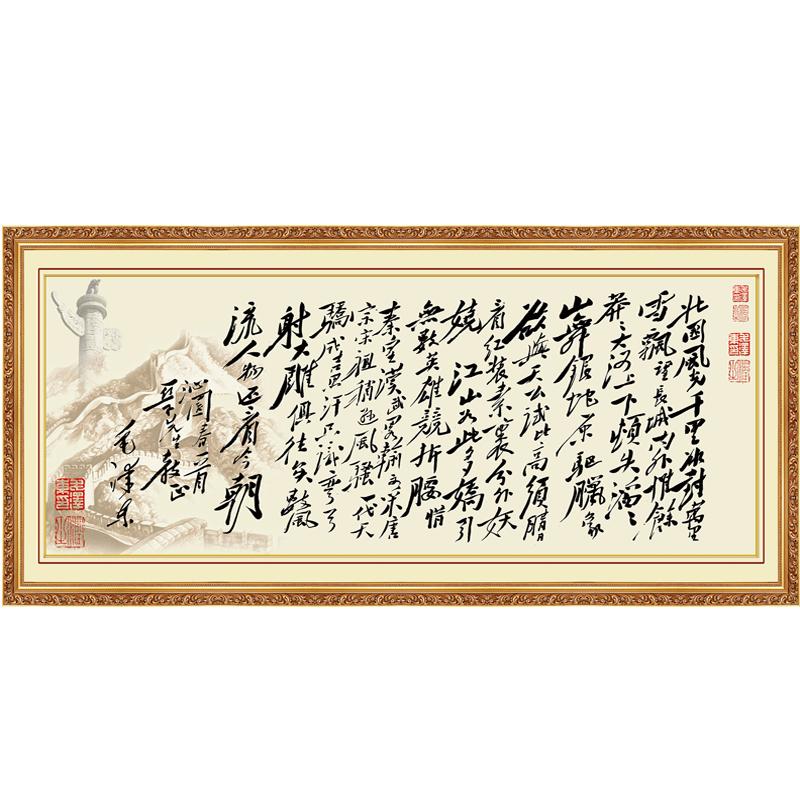 北国風光千里冰封萬里
雪飄望長城内外惟餘
莽〻大河上下頓失滔〻
山舞銀蛇原驅臘象
欲與天公試比高須晴
看紅裝素裹分外妖
嬈江山如此多嬌引
無數英雄競折腰惜
秦皇漢武畧輸文采唐
宗宋祖稍遜風騷一代天
驕成吉思汗只識彎弓
射大雕俱往矣數風
流人物还看今朝
沁園春一首
亞子先生教正
毛澤東